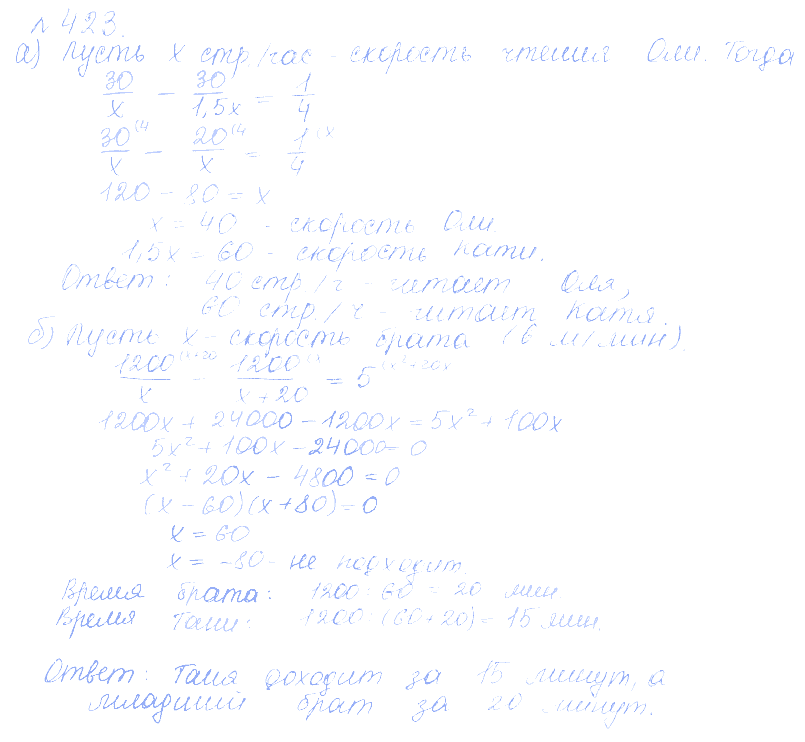 № 423.
а) Пусть x стр./час - скорость чтения Оли. Тогда
30/x - 30/1,5x = 1/4
30(4/x - 20(4/x = 1(x/4
120 - 80 = x
x = 40 - скорость Оли.
1,5x = 60 - скорость Кати.
Ответ: 40 стр/ч - читает Оля,
60 стр./ч - читает Катя.
б) Пусть x - скорость брата (в м/мин).
1200(x+20/x - 1200(x/x+20 = 5(x²+20x
1200x + 24000 - 1200x = 5x² + 100x
5x² + 100x - 24000 = 0
x² + 20x - 4800 = 0
(x - 60)(x + 80) = 0
x = 60
x = -80 - не подходит.
Время брата: 1200 : 60 = 20 мин.
Время Тани: 1200 : (60+20) = 15 мин.
Ответ: Таня доходит за 15 минут, а
младший брат за 20 минут.